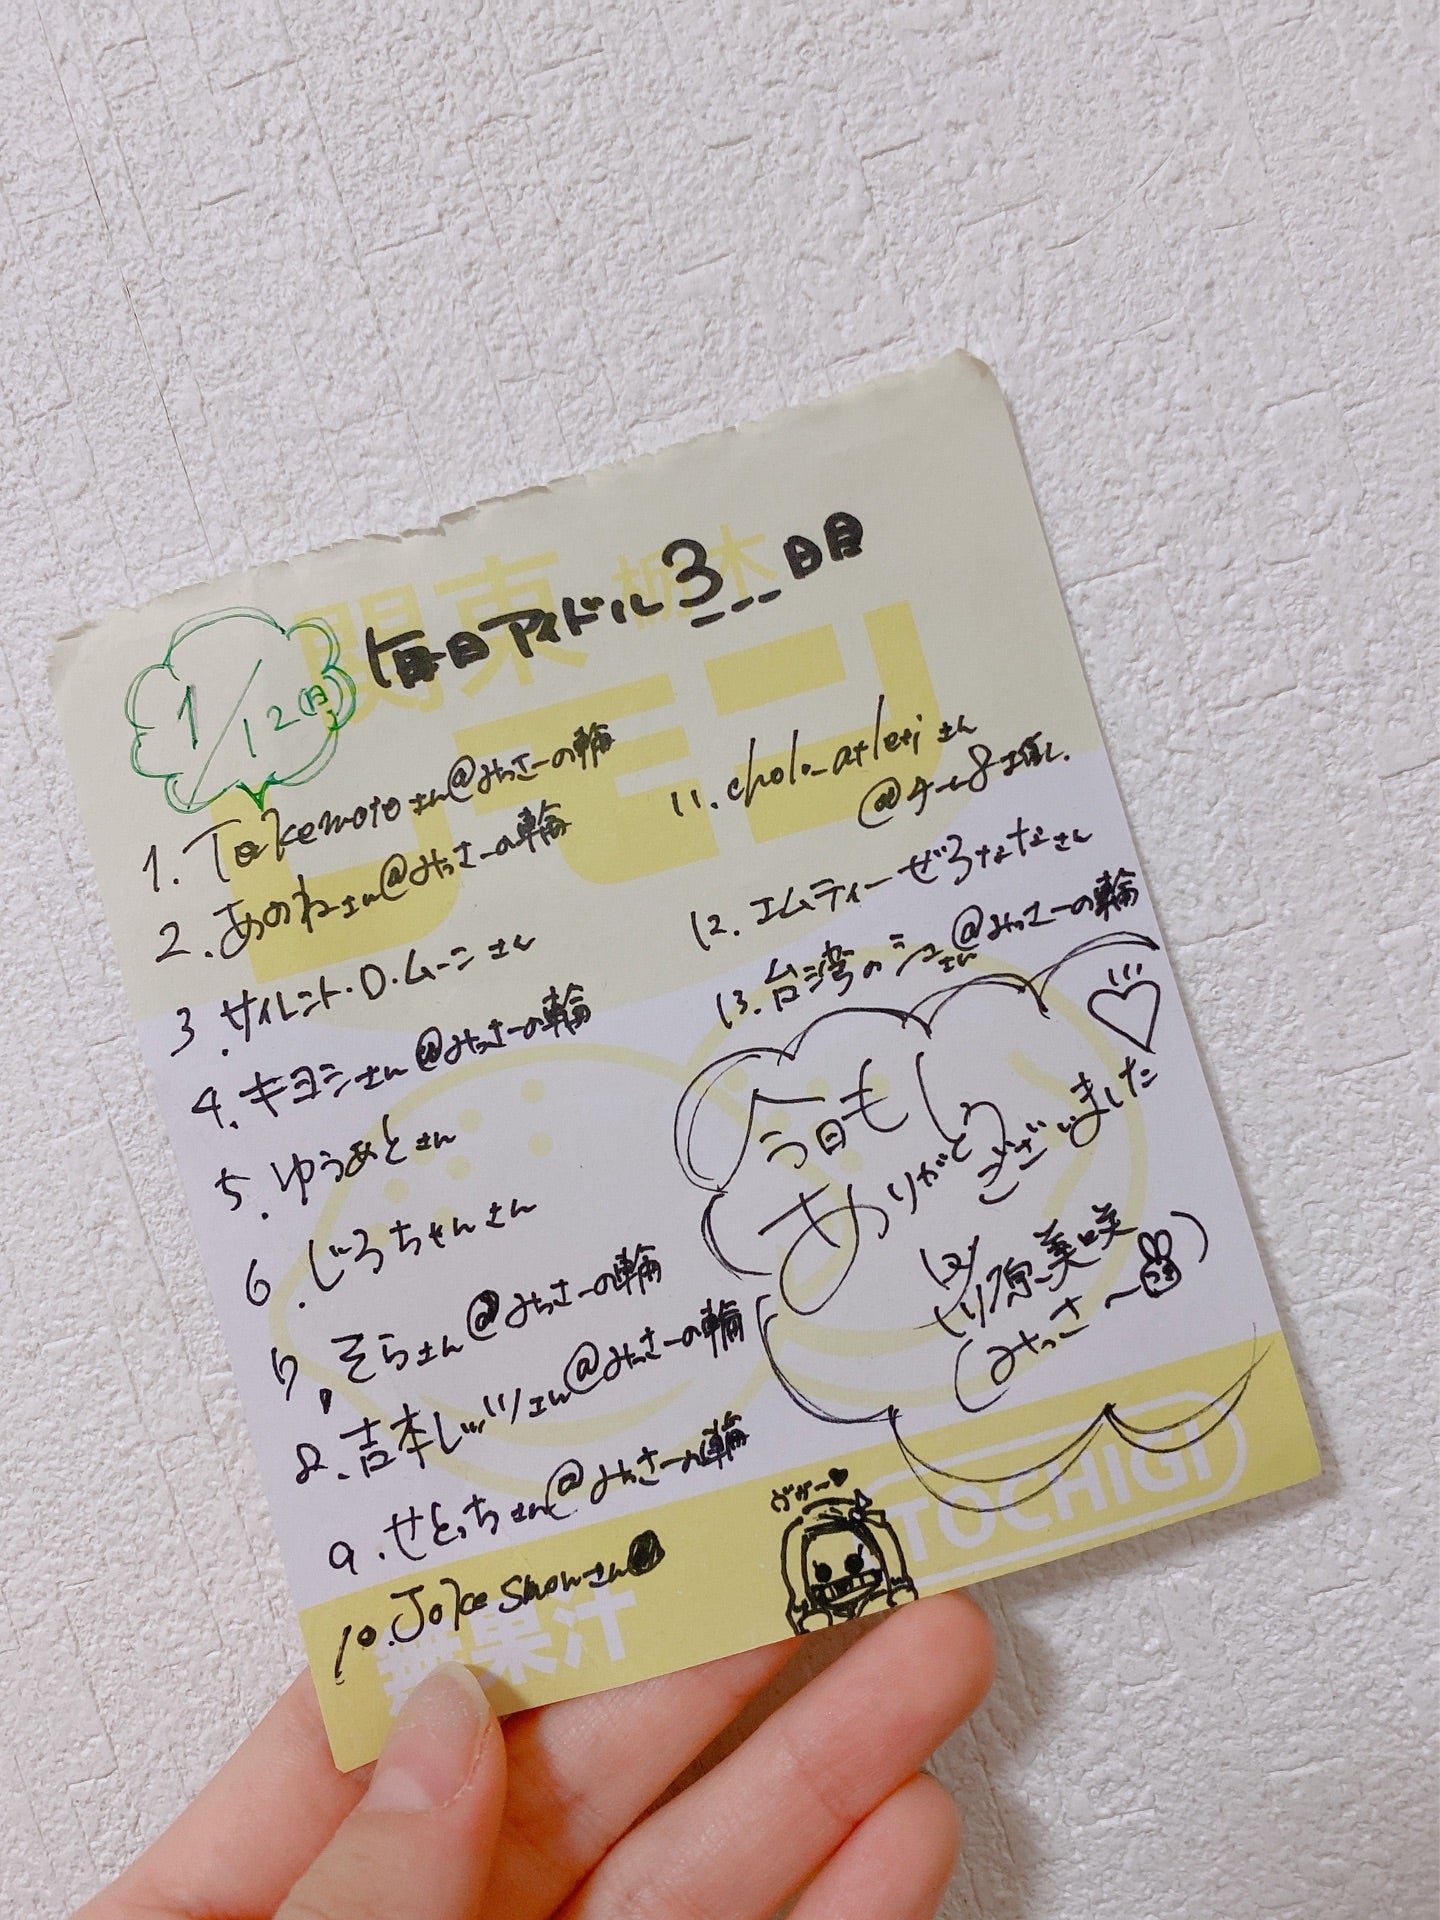 関東 栃木
レモン
毎日アイドル3日目
1/12(月)
1. Takemotoさん@みっさーの輪
2. あのねさん@みっさーの輪
3. サイレント・D・ムーンさん
4. キヨシさん@みっさーの輪
5. ゆうあとさん
6. じろちゃんさん
7. そらさん@みっさーの輪
8. 吉本しッパツさん@みっさーの輪
9. せとっちさん@みっさーの輪
10. Joke Showさん
11. cholo_atletiさん
@チーム8推し.
12. エムティーぜろななさん
13. 台湾のジュさん@みっさーの輪
今日も
ありがとう
ございました
原美咲
(みっさ～)
TOCHIGI
無果汁